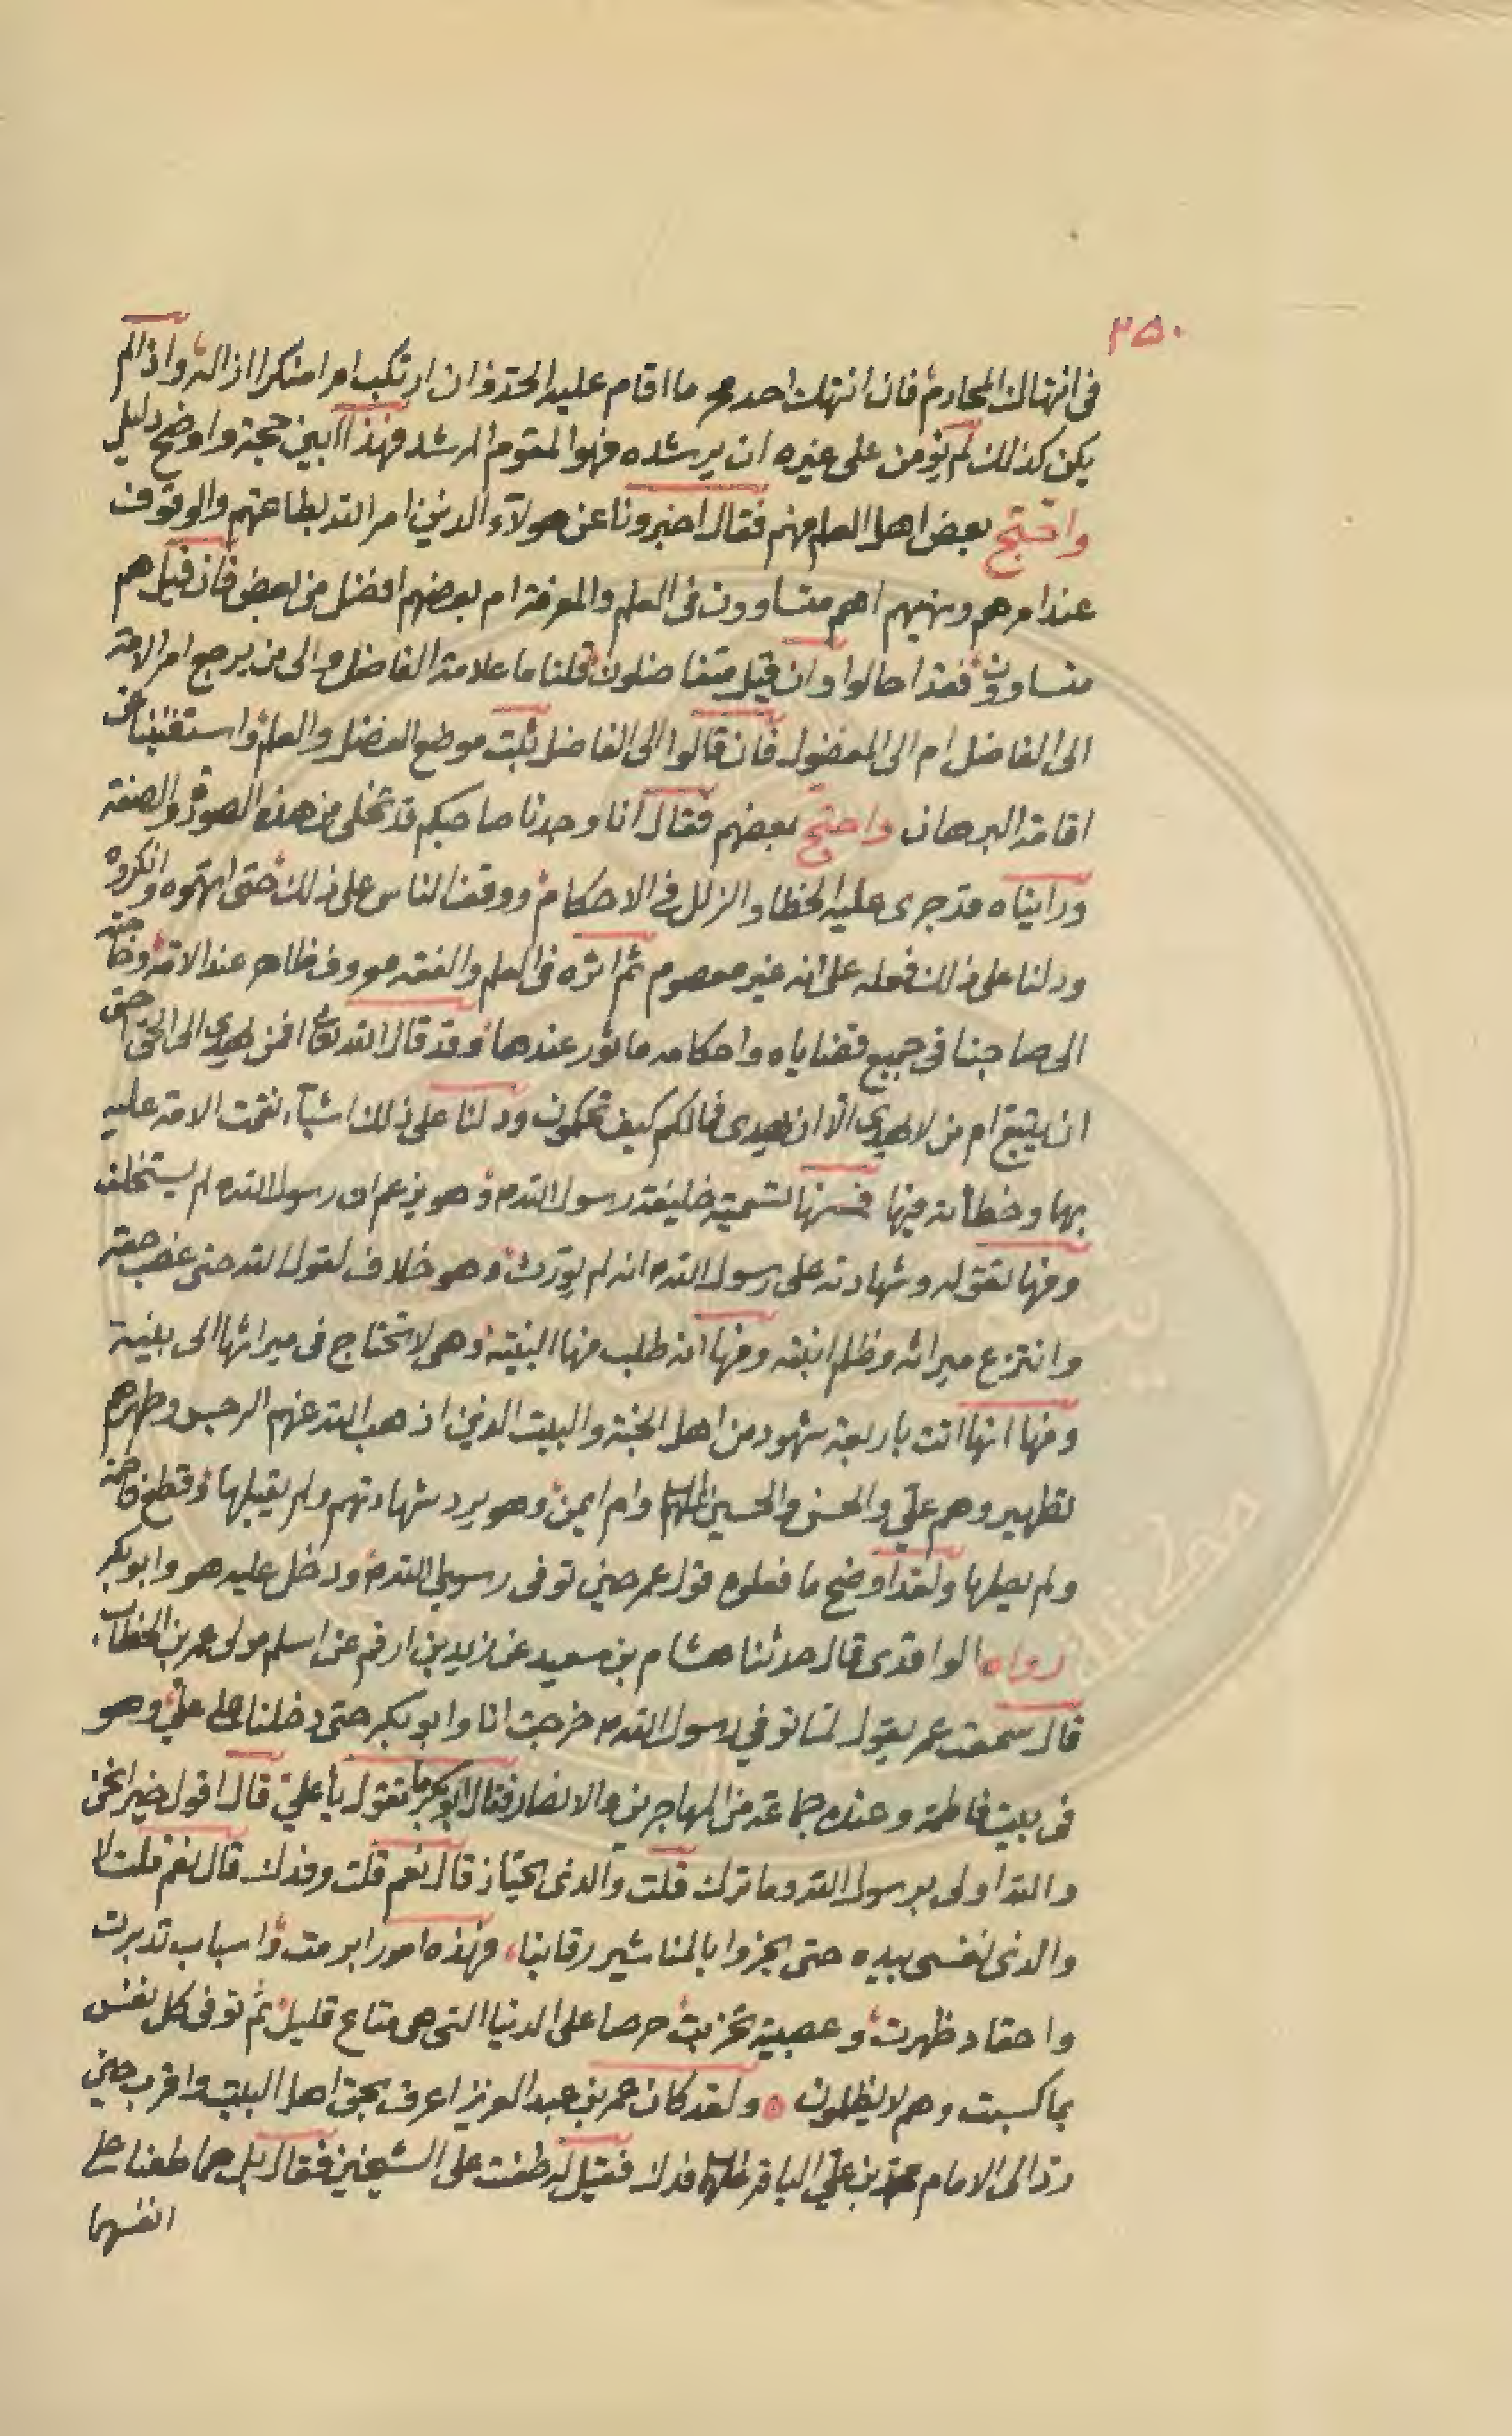 ٢٥٠
فى انتهاك المحارم فان انتهك احد محرما اقام عليه الحد وان ارتكب امرا منكرا ازاله واذا لم
يكن كذلك لم يؤمن على غيره ان يرشده فهو المقوم المرشد فهذا ابين حجة واوضح دليل
واحتج بعض اهل العلم منهم فقال اخبرونا عن هولآء الذين امر الله بطاعتهم والوقوف
عند امرهم ونهيهم اهم متساوون فى العلم والمعرفة ام بعضهم افضل من بعض فان قيل هم
متساوون فقد احالوا وان قيل متفاضلون قلنا ما علامة الفاضل والى من يرجع امر الامة
الى الفاضل ام الى المفضول فان قالوا الى الفاضل ثبت موضع الفضل والعلم واستغنينا عن
اقامة البرهان واحتج بعضهم فقال انا وجدنا صاحبكم قد تخلى من هذه الصورة والصفة
ورايناه قد جرى عليه الخطا والزلل فى الاحكام ووقف الناس على ذلك حتى اتهموه وانكروه
ودلنا على ذلك فعله على انه غير معصوم ثم اثره فى العلم والفقه معروف ظاهر عند الامة
الى صاحبنا فى جميع قضاياه واحكامه ماثور عندها وقد قال الله تعالى افمن يهدى الى الحق احق
ان يتبع ام من لا يهدى الا ان يهدى فمالكم كيف تحكمون ودلنا على ذلك اشيآء نقمت الامة عليه
بها وخطأته فيها فمنها تسميته خليفة رسول الله م وهو يزعم ان رسول الله لم يستخلف
ومنها تقوله وشهادته على رسول الله انه لم يورث وهو خلاف لقول الله حتى غصب حقه
وانتزع ميراثه وظلم ابنته ومنها انه طلب منها البينة وهى لا تحتاج فى ميراثها الى بينة
ومنها انها اتت باربعة شهود من اهل الجنة والبيت الذين اذهب الله عنهم الرجس وطهرهم
تطهير وهم على والحسن والحسين وام ايمن وهو يرد شهادتهم ولم يقبلها
ولم يصلها ولقد اوضح ما فعلوه قول عمر حين توفى رسول الله م ودخل عليه هو وابو بكر
رواه الواقدى قال حدثنا هشام بن سعيد عن زيد بن ارقم عن اسلم مولى عمر بن الخطاب
قال سمعت عمر يقول لما توفي رسول الله م خرجت انا وابو بكر حتى دخلنا على على وهو
فى بيت فاطمة وعنده جماعة من المهاجرين والانصار فقال ابو بكر ما تقول يا على قال اقول خيرا نحن
والله اولى برسول الله وما ترك قلت والذى بخيبر قال نعم قلت وفدك قال نعم قلت لا
والذى نفسى بيده حتى تجزوا بالمناشير رقابنا فهذه امور ابرمت واسباب تدبرت
واحقاد ظهرت وعصبية تحزبت حرصا على الدنيا التى هى متاع قليل ثم توفى كل نفس
بما كسبت وهم لا يظلمون ه ولقد كان عمر بن عبد العزيز اعرف بحق اهل البيت واقرب حين
رد الى الامام محمد بن على الباقر فدك فقيل له طعنت على الشيخين فقال بل هما طعنا على
انفسهما